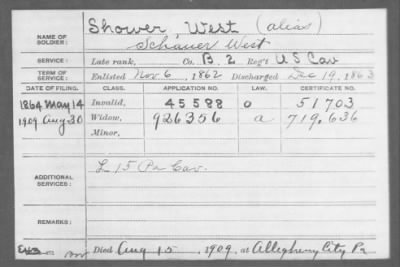 NAME OF SOLDIER: Shower, West (alias)
Schauer West
SERVICE: Late rank, Co. B. 2 Reg't U S Cav
TERM OF SERVICE: Enlisted Nov. 6, 1862 Discharged Dec 19, 1863
DATE OF FILING. CLASS. APPLICATION NO. LAW. CERTIFICATE NO.
1864 May 14 Invalid, 45588 o 51703
1909 Aug 30 Widow, 926356 a 719,636
Minor,
ADDITIONAL SERVICES: L 15 Pa Cav.
REMARKS:
Died Aug 15, 1909, at Allegheny City Pa